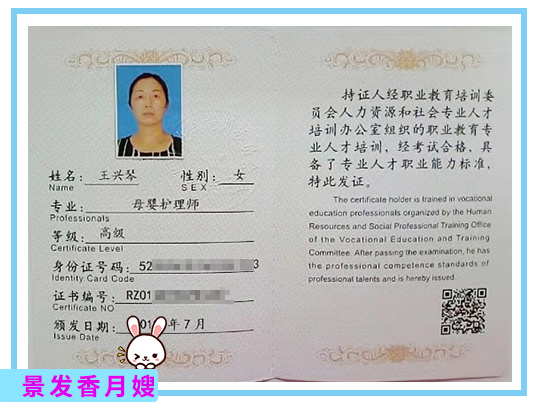 姓名：王兴琴 性别：女
Name SEX
专业：母婴护理师
Professionals
等级：高级
Certificate Level
身份证号码：52 3
Identity Card Code
证书编号：RZ01
Certificate NO
颁发日期： 01 年7月
Issue Date
持证人经职业教育培训委
员会人力资源和社会专业人才
培训办公室组织的职业教育专
业人才培训，经考试合格，具
备了专业人才职业能力标准，
特此发证。
The certificate holder is trained in vocational
education professionals organized by the Human
Resources and Social Professional Training Office
of the Vocational Education and Training
Committee. After passing the examination, he has
the professional competence standards of
professional talents and is hereby issued.
景发香月嫂